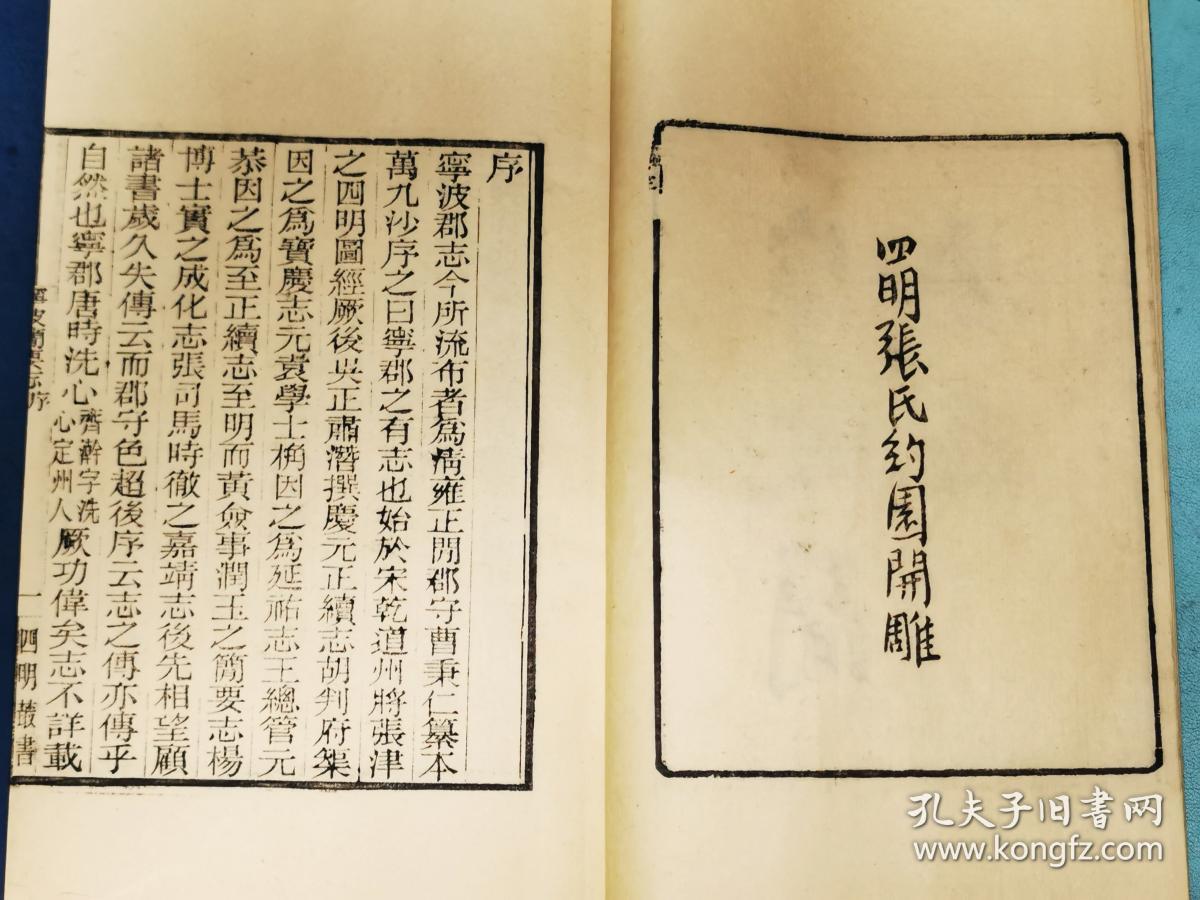 四明張氏約園開雕
序
寧波郡志今所流布者為清雍正閒郡守曹秉仁纂本
萬九沙序之曰寧郡之有志也始於宋乾道州將張津
之四明圖經厥後吳正肅潛撰慶元正續志胡判府榘
因之為寶慶志元袁學士桷因之為延祐志王總管元
恭因之為至正續志至明而黃僉事潤玉之簡要志楊
博士實之成化志張司馬時徹之嘉靖志後先相望顧
諸書歲久失傳云而郡守色超後序云志之傳亦傳乎
自然也寧郡唐時洗心齊澣字洗心定州人厥功偉矣志不詳載
寧波簡要志序
一
四明叢書
孔夫子旧书网
www.kongfz.com